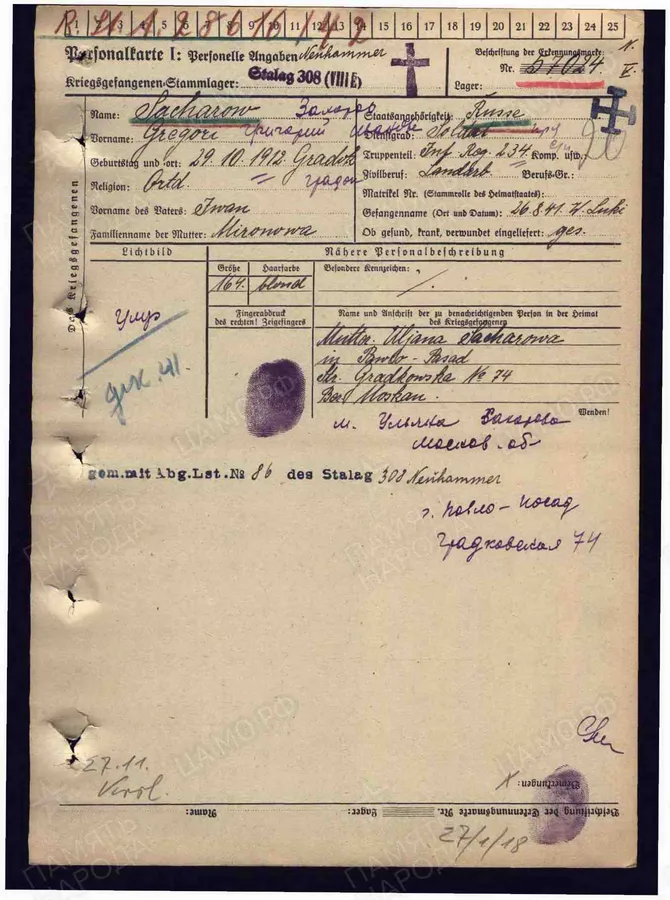 1 2 3 4 5 6 7 8 9 10 11 12 13 14 15 16 17 18 19 20 21 22 23 24 25
Personalkarte I: Personelle Angaben Neuhammer
Kriegsgefangenen-Stammlager: Stalag 308 (VIII E)
Beschriftung der Erkennungsmarke
Nr. 57024
Lager:
Des Kriegsgefangenen
Name: Sacharow
Vorname: Gregori Григорий
Geburtstag und -ort: 29.10.1912 Gradok
Religion: Ortd
Vorname des Vaters: Iwan
Familienname der Mutter: Mironowa
Staatsangehörigkeit: Russe
Dienstgrad: Soldat
Truppenteil: Inf Reg 234. Komp. usw.:
Zivilberuf: Landarb. Berufs-Gr.:
Matrikel Nr. (Stammrolle des Heimatstaates):
Gefangennahme (Ort und Datum): 26.8.41. W. Luki
Ob gesund, krank, verwundet eingeliefert: ges.
Lichtbild
Nähere Personalbeschreibung
Größe Haarfarbe Besondere Kennzeichen:
164. blond
Fingerabdruck
des rechten! Zeigefingers
Name und Anschrift der zu benachrichtigenden Person in der Heimat
des Kriegsgefangenen
Mutter. Uljana Sacharowa
in Pawlo-Posad
Str. Gradkowska No 74
Bez. Moskau.
Wenden!
дек. 41.
м. Ульяна Захарова
Москов. об
gem.mit Abg.Lst.№ 86 des Stalag 308 Neuhammer
г. Павло-Посад
Градковская 74
27.11.
Bemerkungen:
Beschriftung der Erkennungsmarke Nr. Lager: Name:
27/1/18
ПАМЯТЬ НАРОДА
ЦАМО.РФ